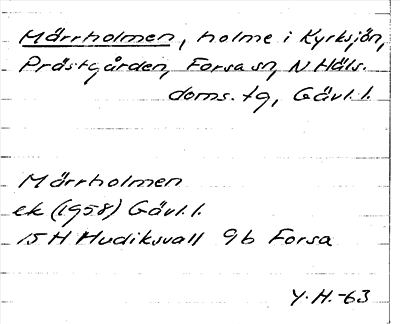 Mårrholmen, holme i Kyrksjön,
Prästgården, Forsa sn, N. Häls.
doms. tg, Gävl. l.
Mårrholmen
ek (1958) Gävl. l.
15 H Hudiksvall 9b Forsa
Y. H. -63